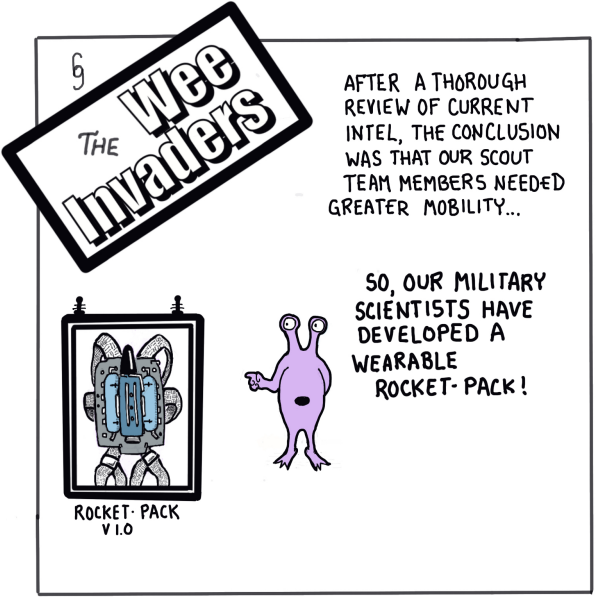 69
THE
Wee
Invaders
AFTER A THOROUGH
REVIEW OF CURRENT
INTEL, THE CONCLUSION
WAS THAT OUR SCOUT
TEAM MEMBERS NEEDED
GREATER MOBILITY...
SO, OUR MILITARY
SCIENTISTS HAVE
DEVELOPED A
WEARABLE
ROCKET-PACK!
ROCKET-PACK
V 1.0